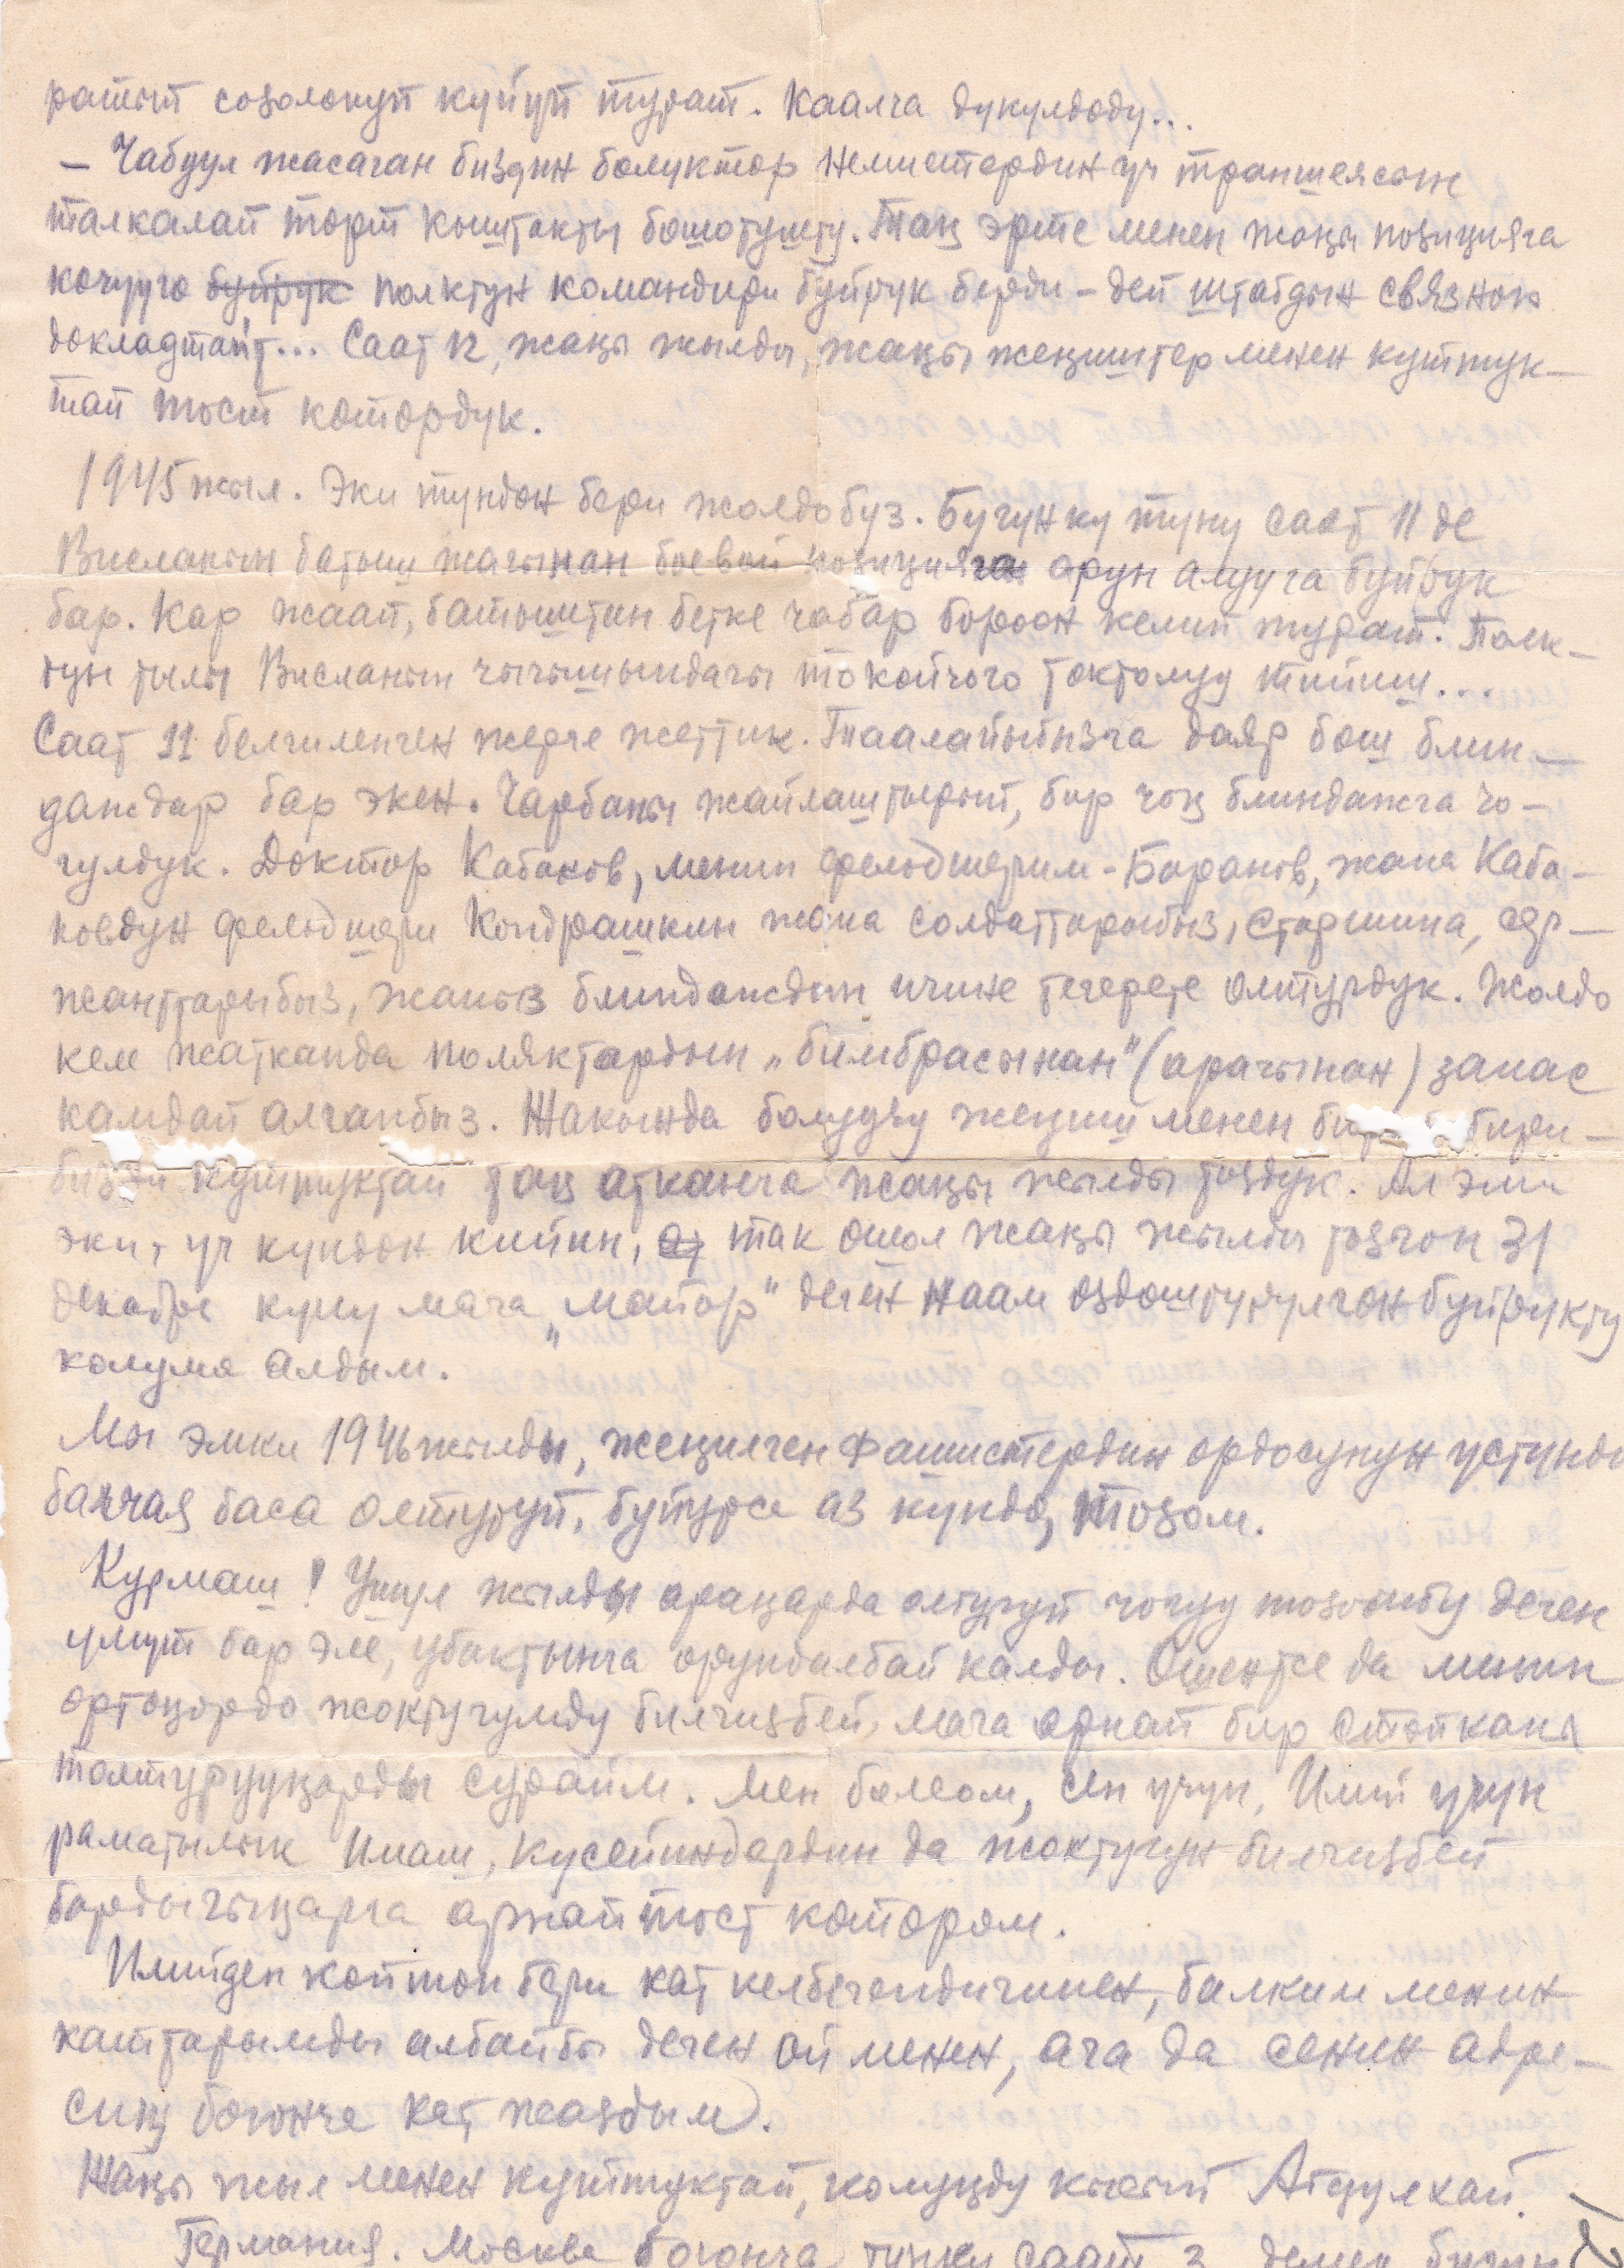 ратып созолонуп куйуп турат. Каалга дукулдоду...
– Чабуул жасаган биздин болуктор немистердин уч траншеясын
талкалап торт кыштакты бошотушту. Таң эрте менен жаңы позицияга
кочууго буйрук полктун командири буйрук берди – деп штабдын связной
докладтайт... Саат 12, жаңы жылды, жаңы жеңиштер менен куттук-
тап тост котордук.
1945 жыл. Эки тундон бери жолдобуз. Бугунку туну саат 11 де
Висланын батыш жагынан боевой позицияга орун алууга буйрук
бар. Кар жаап, батыштин бетке чабар бороон келип турат. Полк-
тун тылы Висланын чыгышындагы токойчого токтолуу тийиш...
Саат 11 белгиленген жерге жеттик. Таалайыбызга даяр бош блин-
даждар бар экен. Чарбаны жайлаштырып, бир чоң блиндажга чо-
гулдук. Доктор Кабаков, менин фельдшерим – Баранов, жана Каба-
ковдун фельдшери Кондрашкин жана солдаттарыбыз, старшина, сер-
жанттарыбыз, жалгыз блиндаждын ичине тегерете олтурдук. Жолдо
келе жатканда поляктардын „бимбрасынан" (арагынан) запас
камдап алганбыз. Жакында болуучу жеңиш менен бири бири-
бизди куттуктап таң атканча жаңы жылды тоздук. Ал эми
эки, уч кундон кийин, так ошол жаңы жылды тозгон 31
декабрь куну мага „майор" деген наам оздоштурулгон буйрукту
колума алдым.
Мы эмки 1946 жылды, жеңилген фашистердин ордосунун устундо
балчая баса олтуруп, бутурсо аз кундо, тозом.
Курмаш! Ушул жылды араңарда олтуруп чогуу тозомбу деген
умут бар эле, убактынча орундалбай калды. Ошентсе да менин
ортоңордо жоктугумду билгизбей, мага арнап бир стопканы
толтурууңарды сурайм. Мен болсом, сен учун, Имий учун
раматылык Имаш, Кусейиндердин да жоктугун билгизбей
бардыгыңарга арнап тост котором.
Имийден көптөн бери кат келбегендигинен, балким менин
каттарымды албайбы деген ой менен, ага да сенин адре-
сиң боюнча кат жаздым.
Жаңы жыл менен куттуктап, колуңду кысып Абдулхай.
Германия. Москва боюнча тунку саат 3